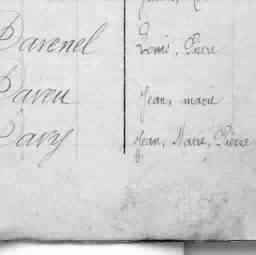 Davenel Louis, Pierre
Davou Jean, marie
Davy Jean, Marie, Pierre